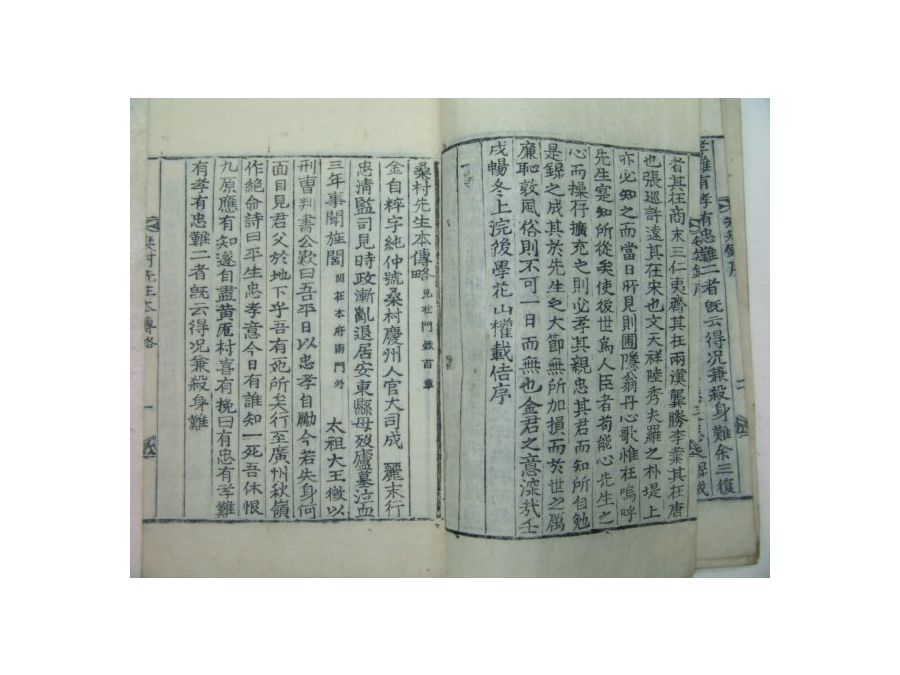 孝難有孝有忠難二者旣云得况兼殺身難余三復
者其在商末三仁夷齊其在兩漢龔勝李業其在唐
也張巡許遠其在宋也文天祥陸秀夫羅之朴堤上
亦必知之而當日所見則圃隱翁丹心歌惟在嗚呼
先生寔知所從矣使後世爲人臣者苟能心先生之
心而操存擴充之則必孝其親忠其君而知所自勉
是錄之成其於先生之大節無所加損而於世之厲
廉恥敦風俗則不可一日而無也金君之意深㢤壬
戌暢冬上浣後學花山權載佶序
桑村先生本傳略 見杜門錄首章
金自粹字純仲號桑村慶州人官大司成 麗末行
忠淸監司見時政漸亂退居安東縣母歿廬墓泣血
三年事聞旌閭 閭在本府南門外 太祖大王徵以
刑曹判書公歎曰吾平日以忠孝自勵今若失身何
面目見君父於地下乎吾有死所矣行至廣州秋嶺
作絶命詩曰平生忠孝意今日有誰知一死吾休恨
九原應有知遂自盡黃厖村喜有挽曰有忠有孝難
有孝有忠難二者旣云得况兼殺身難
桑村先生本傳略 一